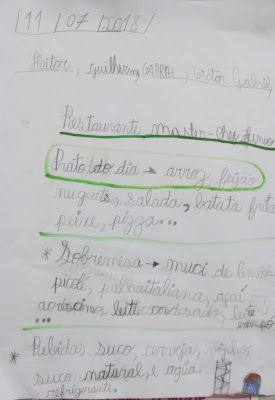 11/07/2018
Heitor, guilherme, Gabriel,
Restaurante master-chef junio
Prato do dia → arroz, feijão
nuguets, salada, batata frita
peixe, pizza...
* Sobremesa → muci de limão
picolé, palhaitaliana, açaí
acrécimos leite condesado, leite
...
* Bebidas suco, cerveja, vinho,
suco natural, e agúa.
refrigerante.